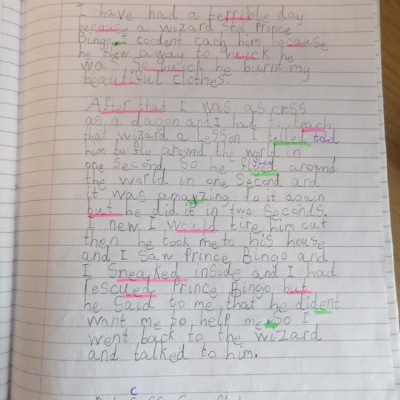 I have had a terrible day
because a wizard stol Prince
Bingo. I coodent cach him because
he flew away to quick he
was so quick he burnt my
beautiful clothes.
After that I was as cross
as a dragon and I had to teach
that wizard a lesson I told
him to fly around the world in
one second. So he flew around
the world in one second and
it was amazing to it again
but he did it in two seconds.
I new I would tire him out
then he took me to his house
and I saw Prince Bingo and
I sneaked inside and I had
rescued Prince Bingo but
he said to me that he dident
want me to help me. So I
went back to the wizard
and talked to him.